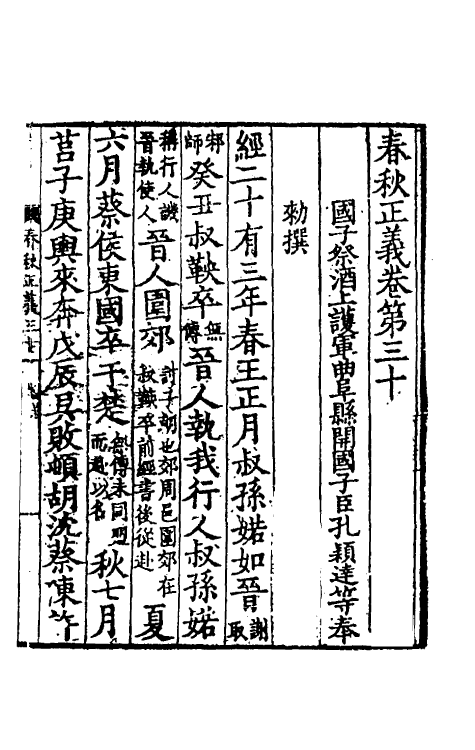 春秋正義卷第三十
國子祭酒上護軍曲阜縣開國子臣孔穎達等奉
勑撰
經二十有三年春王正月叔孫婼如晉謝取
邾師癸丑叔鞅卒無傳晉人執我行人叔孫婼
稱行人譏晉執使人晉人圍郊討子朝也郊周邑圍郊在叔鞅卒前經書後從赴夏
六月蔡侯東國卒于楚無傳未同盟而赴以名秋七月
莒子庚輿來奔戊辰吳敗頓胡沈蔡陳許
春秋正義三十